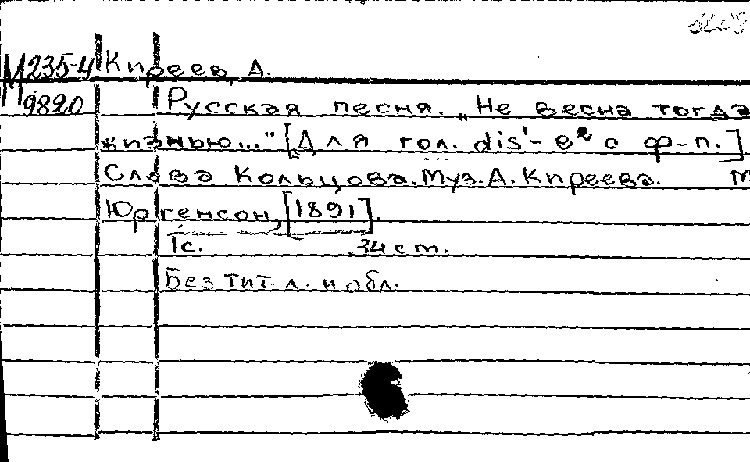 М235-4 Киреев, А.
М9820 Русская песня. „Не весна тогда
жизнью..." [Для гол. dis'-e² с ф-п.]
Слова Кольцова. Муз. А. Киреева. М
Юргенсон, [1891].
1с. 34см.
Без тит. л. и обл.